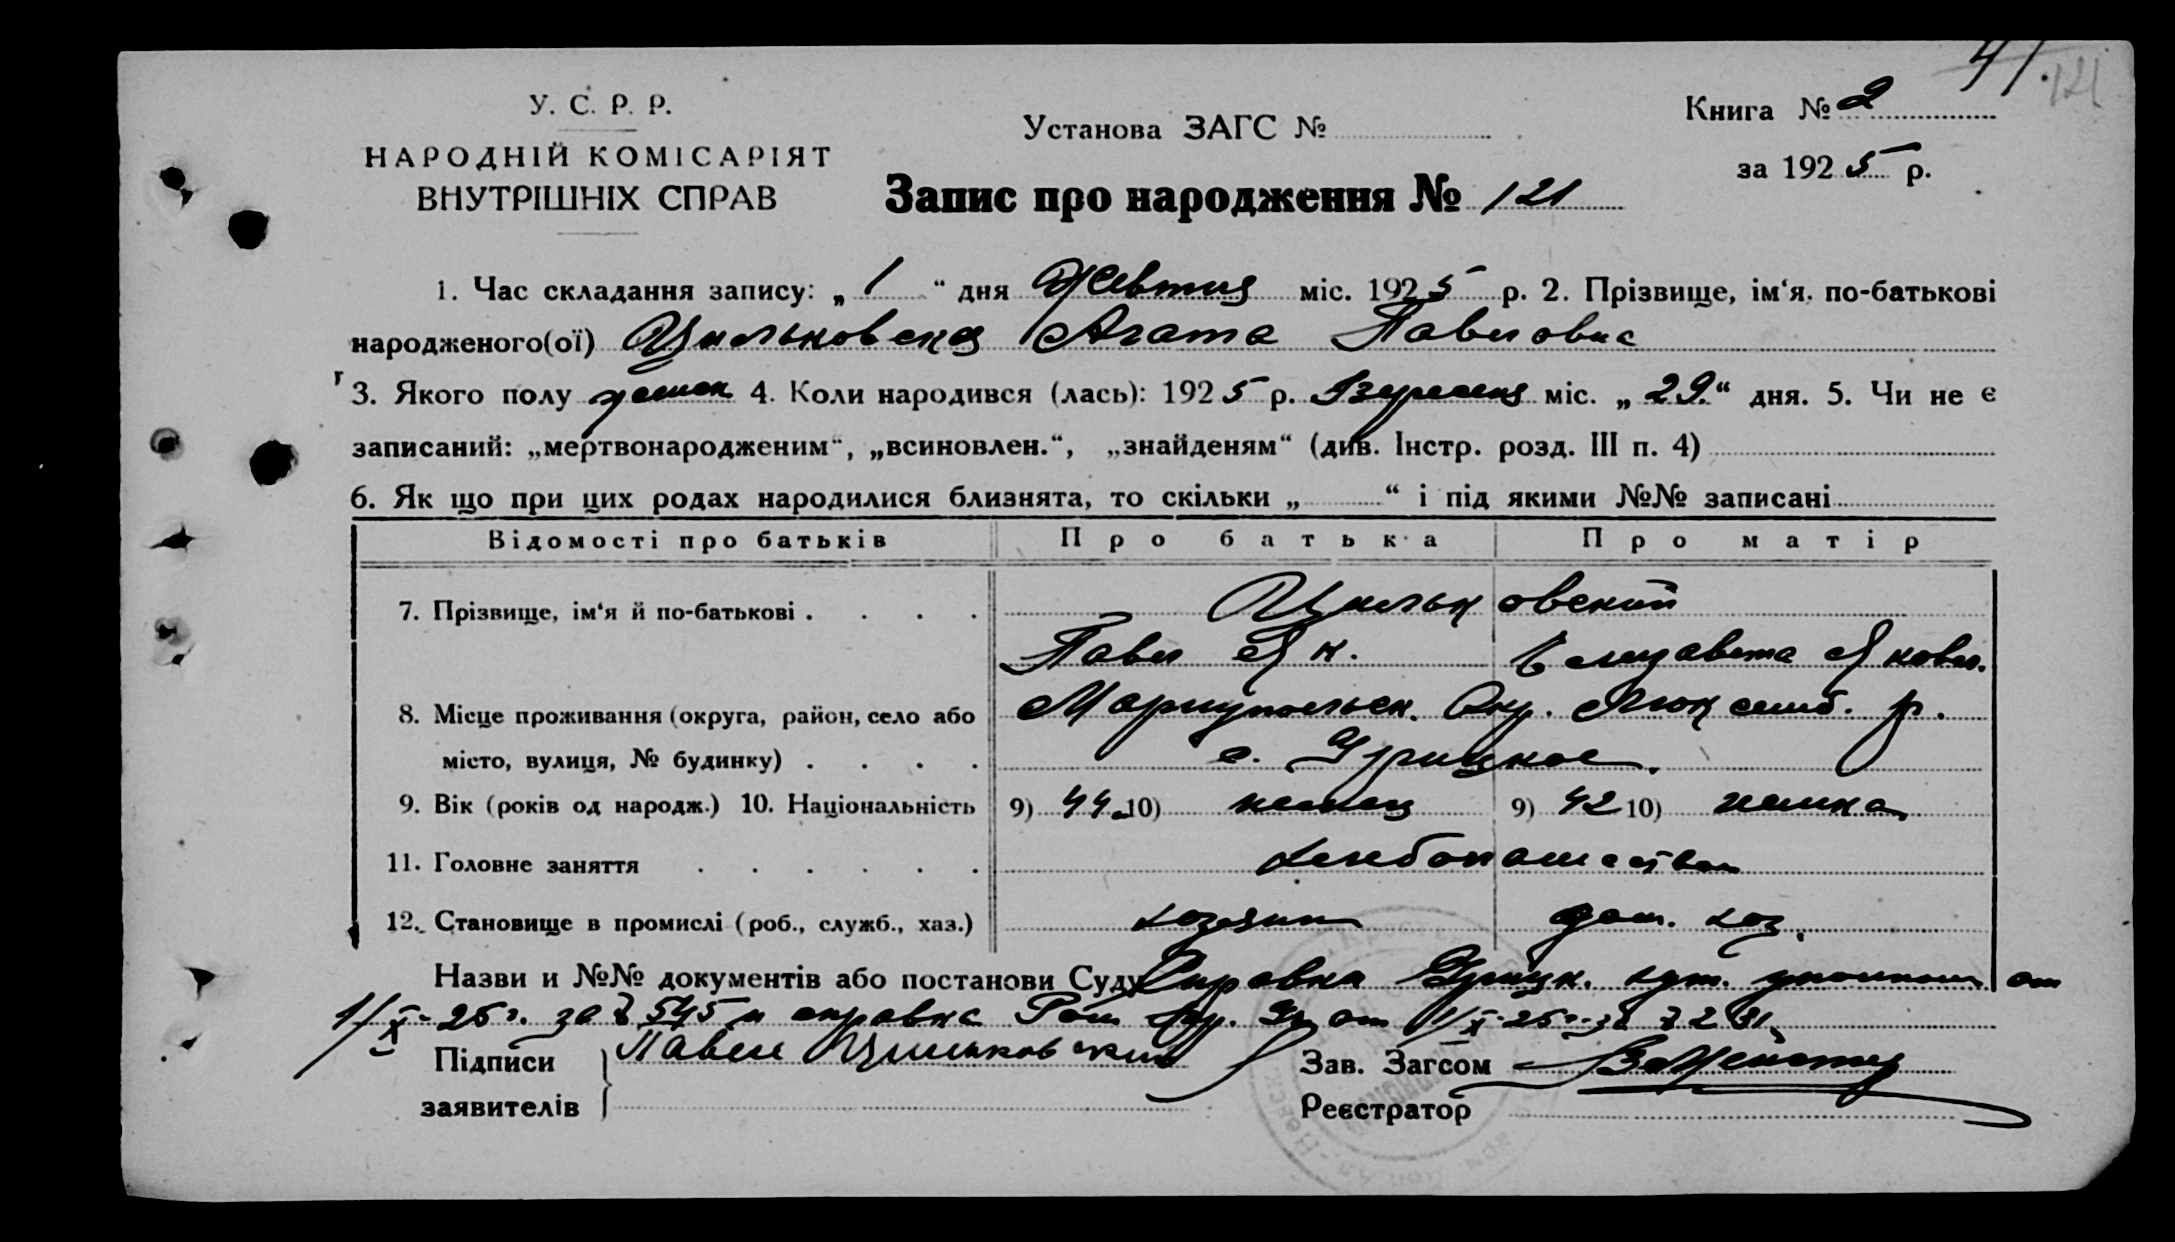 41.
121
У. С. Р. Р.
НАРОДНІЙ КОМІСАРІЯТ
ВНУТРІШНІХ СПРАВ
Установа ЗАГС №
Книга № 2
за 1925 р.
Запис про народження № 121
1. Час складання запису: „ 1 “ дня Жовтня міс. 1925 р. 2. Прізвище, ім‘я, по-батькові
народженого(ої) Цильковская Агата Павловна
3. Якого полу женск 4. Коли народився (лась): 1925 р. Вересня міс. „ 29 “ дня. 5. Чи не є
записаний: „мертвонародженим“, „всиновлен.“, „знайденям“ (див. Інстр. розд. III п. 4)
6. Як що при цих родах народилися близнята, то скільки „ “ і під якими №№ записані
Відомості про батьків Про батька Про матір
7. Прізвище, ім‘я й по-батькові . . . . Цильковский
Павел Як. Елизавета Яковл.
8. Місце проживання (округа, район, село або Мариупольск. Окр. Люксемб. р.
місто, вулиця, № будинку) . . . . с. Урицкое.
9. Вік (років од народж.) 10. Національність 9) 44 10) немец 9) 42 10) немка
11. Головне заняття . . . . . . хлебопашество
12. Становище в промислі (роб., служб., хаз.) хозяин дом. хоз.
Назви и №№ документів або постанови Суду Справка Урицк. уполном от
1/X-25г. за № 545 и справка от 1/X-25г.
Підписи Павел Цильковский Зав. Загсом
заявителів Реєстратор